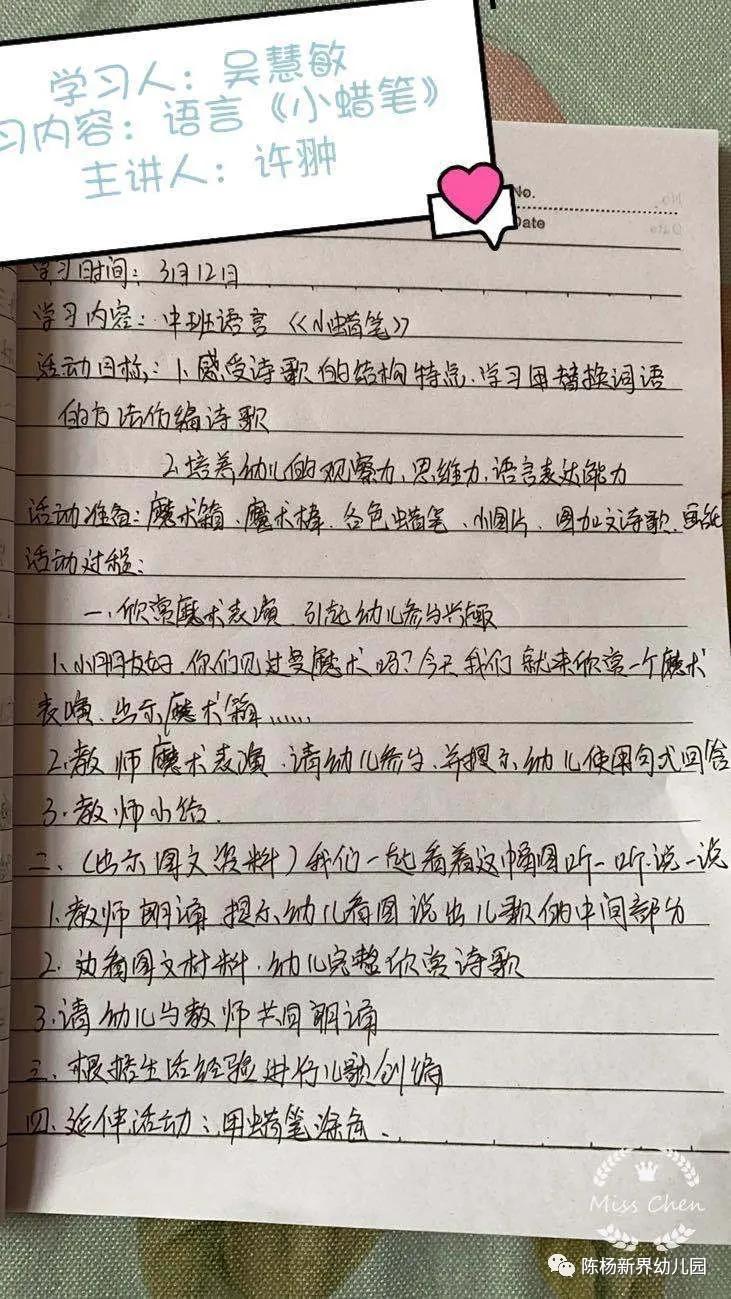 学习人：吴慧敏
习内容：语言《小蜡笔》
主讲人：许翀
No.
Date
学习时间：3月12日
学习内容：中班语言《小蜡笔》
活动目标：1.感受诗歌的结构特点.学习用替换词语
的方法仿编诗歌
2.培养幼儿的观察力,思维力,语言表达能力
活动准备：魔术箱、魔术棒、各色蜡笔、小图片、图加文诗歌、画纸
活动过程：
一、欣赏魔术表演 引起幼儿参与兴趣
1.小朋友好.你们见过变魔术吗？今天我们就来欣赏一个魔术
表演、出示魔术箱……
2.教师魔术表演.请幼儿参与.并提示幼儿使用句式回答
3.教师小结.
二、（出示图文资料）我们一起看着这幅图听一听.说一说
1.教师朗诵 提示幼儿看图说出儿歌的中间部分
2.边看图文材料.幼儿完整欣赏诗歌
3.请幼儿与教师共同朗诵
三、根据生活经验进行儿歌创编
四、延伸活动：用蜡笔涂色.
Miss Chen
陈杨新界幼儿园